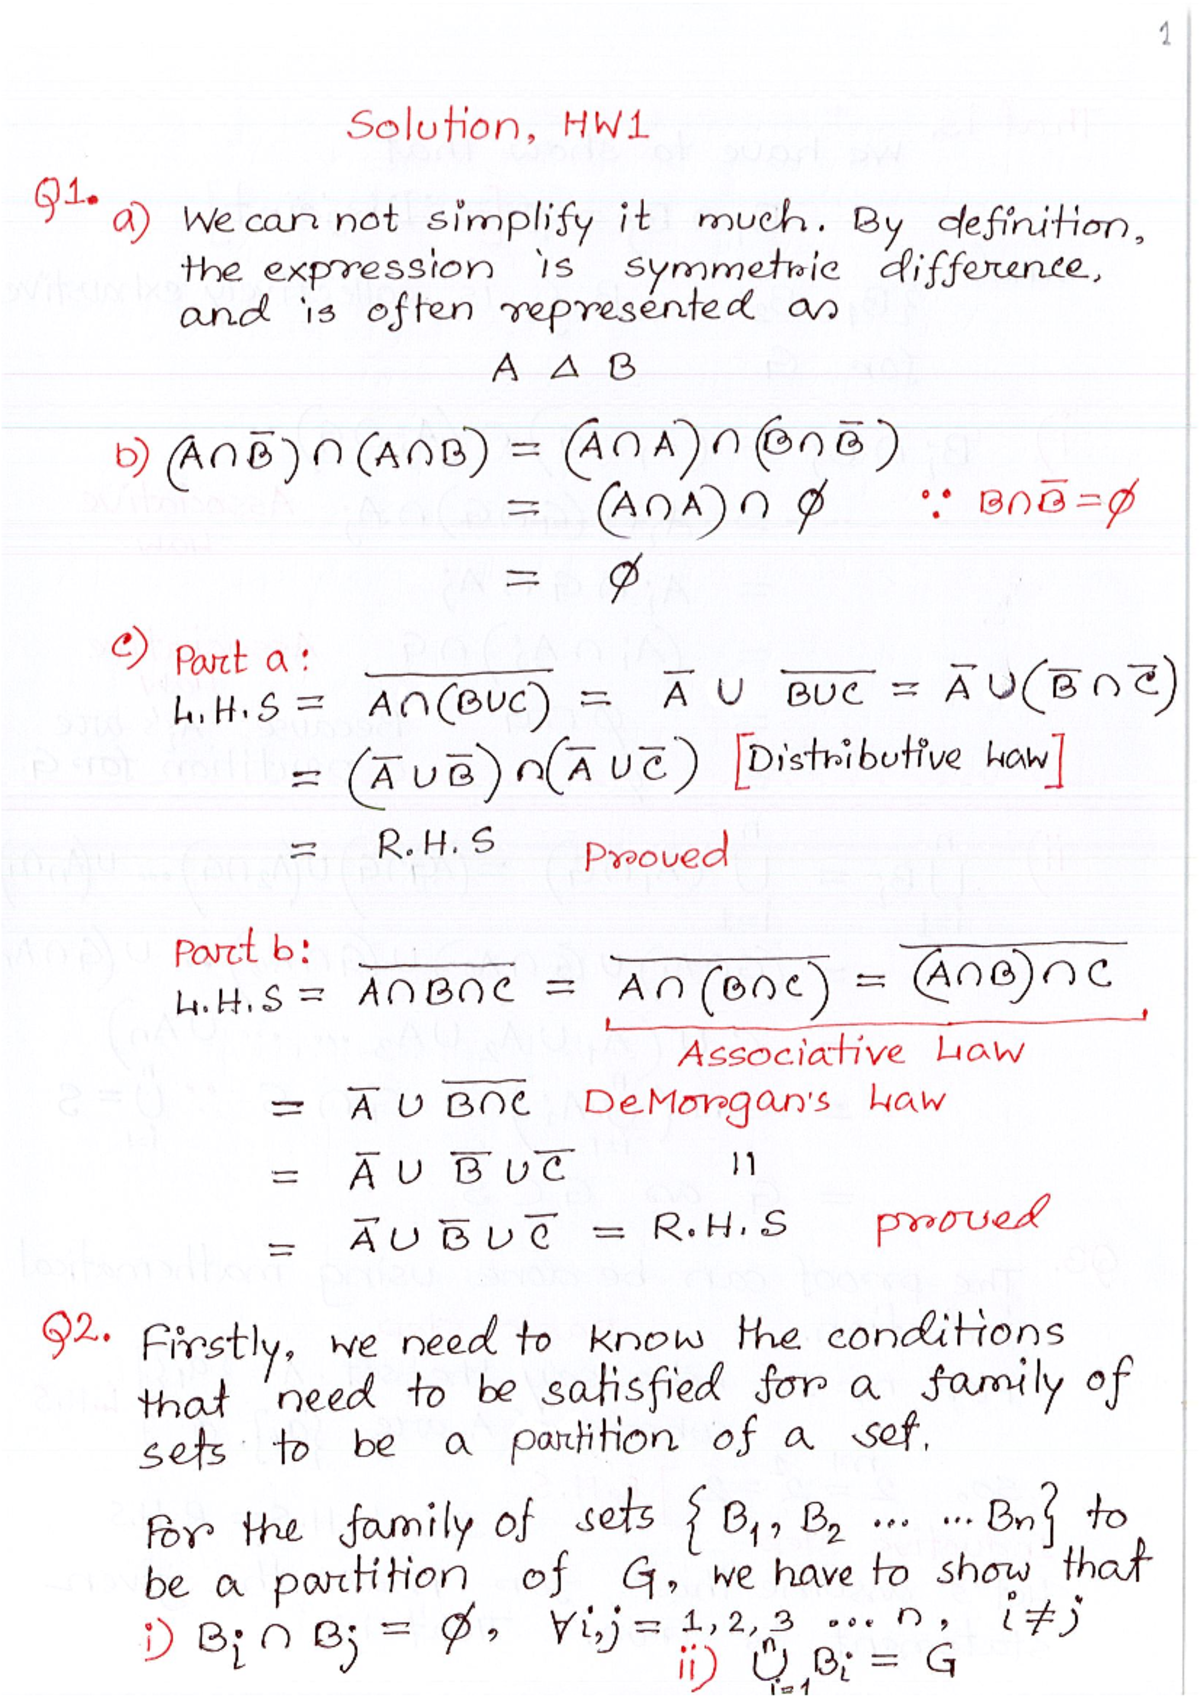 1
Solution, HW1
Q1. a) We can not simplify it much. By definition,
the expression is symmetric difference,
and is often represented as
A Δ B
b) (A∩B̅)∩(A∩B) = (A∩A)∩(B∩B̅)
= (A∩A)∩ ∅ ∵ B∩B̅=∅
= ∅
c) Part a:
L.H.S = \overline{A∩(B∪C)} = A̅ ∪ \overline{B∪C} = A̅ ∪(B̅ ∩ C̅)
= (A̅ ∪ B̅)∩(A̅ ∪ C̅) [Distributive Law]
= R.H.S Proved
Part b:
L.H.S = \overline{A∩B∩C} = \overline{A∩(B∩C)} = \overline{(A∩B)∩C}
Associative Law
= A̅ ∪ \overline{B∩C} DeMorgan's Law
= A̅ ∪ B̅ ∪ C̅ 11
= A̅ ∪ B̅ ∪ C̅ = R.H.S proved
Q2. Firstly, we need to know the conditions
that need to be satisfied for a family of
sets to be a partition of a set.
For the family of sets {B₁, B₂ ... ... Bn} to
be a partition of G, we have to show that
i) Bᵢ ∩ Bⱼ = ∅, ∀i,j = 1,2,3 ... n, i≠j
ii) \bigcup_{i=1}^{n} Bᵢ = G